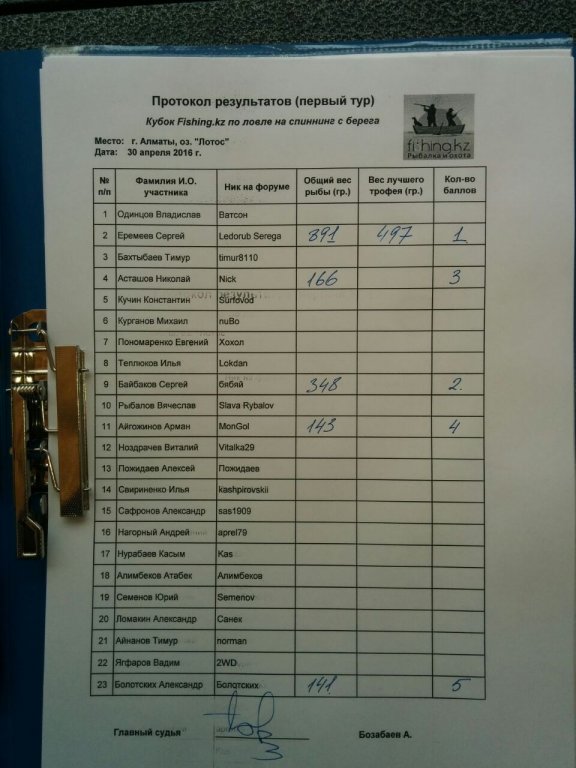 Протокол результатов (первый тур)
Кубок Fishing.kz по ловле на спиннинг с берега
fishing.kz
Рыбалка и охота
Место: г. Алматы, оз. "Лотос"
Дата: 30 апреля 2016 г.
№ п/п Фамилия И.О. участника Ник на форуме Общий вес рыбы (гр.) Вес лучшего трофея (гр.) Кол-во баллов
1 Одинцов Владислав Ватсон
2 Еремеев Сергей Ledorub Serega 891 497 1
3 Бахтыбаев Тимур timur8110
4 Асташов Николай Nick 166 3
5 Кучин Константин Surfovod
6 Курганов Михаил nuBo
7 Пономаренко Евгений Хохол
8 Теплюков Илья Lokdan
9 Байбаков Сергей бябяй 348 2.
10 Рыбалов Вячеслав Slava Rybalov
11 Айгожинов Арман MonGol 143 4
12 Ноздрачев Виталий Vitalka29
13 Пожидаев Алексей Пожидаев
14 Свириненко Илья kashpirovskii
15 Сафронов Александр sas1909
16 Нагорный Андрей aprel79
17 Нурабаев Касым Kas
18 Алимбеков Атабек Алимбеков
19 Семенов Юрий Semenov
20 Ломакин Александр Санек
21 Айнанов Тимур norman
22 Ягфаров Вадим 2WD
23 Болотских Александр Болотских 141. 5
Главный судья Бозабаев А.